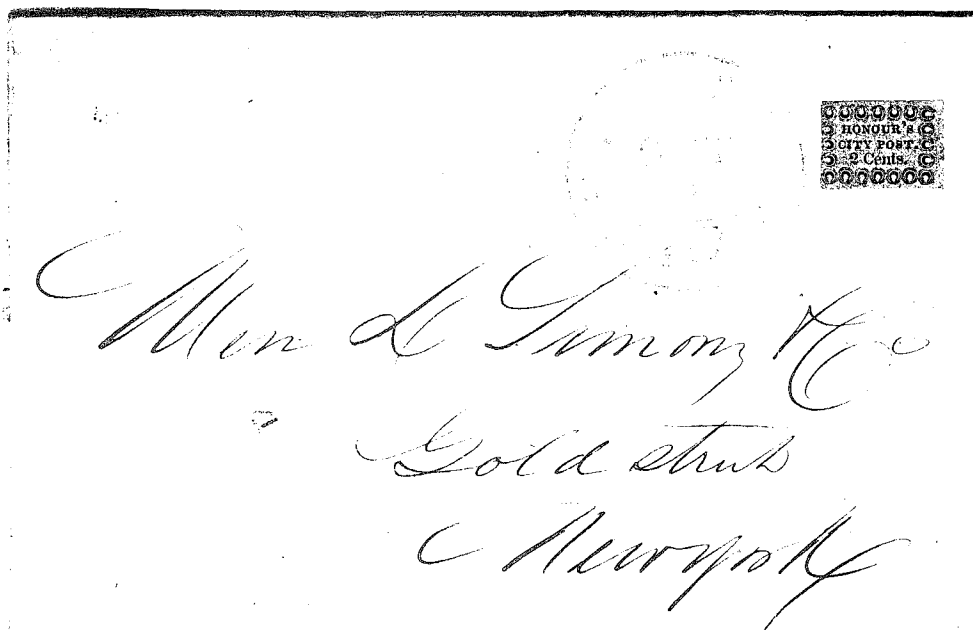 HONOUR'S
CITY POST.
2 Cents.
L Simons & Co
Gold
New york